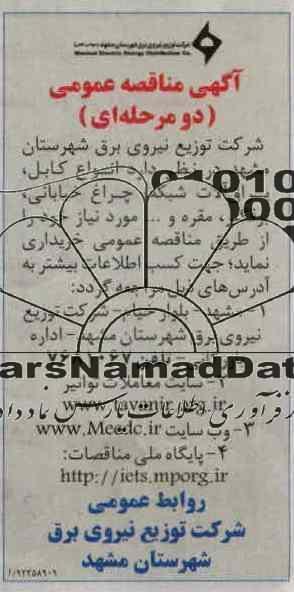 شرکت توزیع نیروی برق شهرستان مشهد
Mashhad Electric Energy Distribution Co.
آگهی مناقصه عمومی
(دو مرحله‌ای)
شرکت توزیع نیروی برق شهرستان
مشهد در نظر دارد انواع کابل،
یراق‌آلات شبکه، چراغ خیابانی،
مقره و ... مورد نیاز خود را
از طریق مناقصه عمومی خریداری
نماید؛ جهت کسب اطلاعات بیشتر به
آدرس‌های ذیل مراجعه گردد:
۱- مشهد - بلوار خیام - شرکت توزیع
نیروی برق شهرستان مشهد - اداره
تلفن
۲- سایت معاملات توانیر
www.tavanir.org.ir
۳- وب سایت www.Meedc.ir
۴- پایگاه ملی مناقصات:
http://iets.mporg.ir
روابط عمومی
شرکت توزیع نیروی برق
شهرستان مشهد
۹۲۲۵۸۹۰۹/ا
01010
ParsNamadData